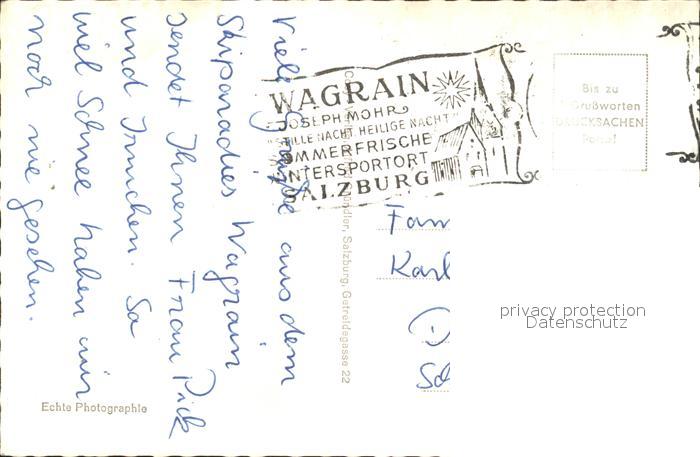 Viele Grüße aus dem
Skiparadies Wagrain
sendet Ihnen Frau Pick
und Irmchen. So
viel Schnee haben wir
noch nie gesehen.
Echte Photographie
WAGRAIN
JOSEPH MOHR
"STILLE NACHT, HEILIGE NACHT"
SOMMERFRISCHE
WINTERSPORTORT
SALZBURG
Salzburg, Getreidegasse 22
Bis zu
5 Grußworten
DRUCKSACHEN
Porto!
Fam
Karl
(-)
Sd
privacy protection
Datenschutz